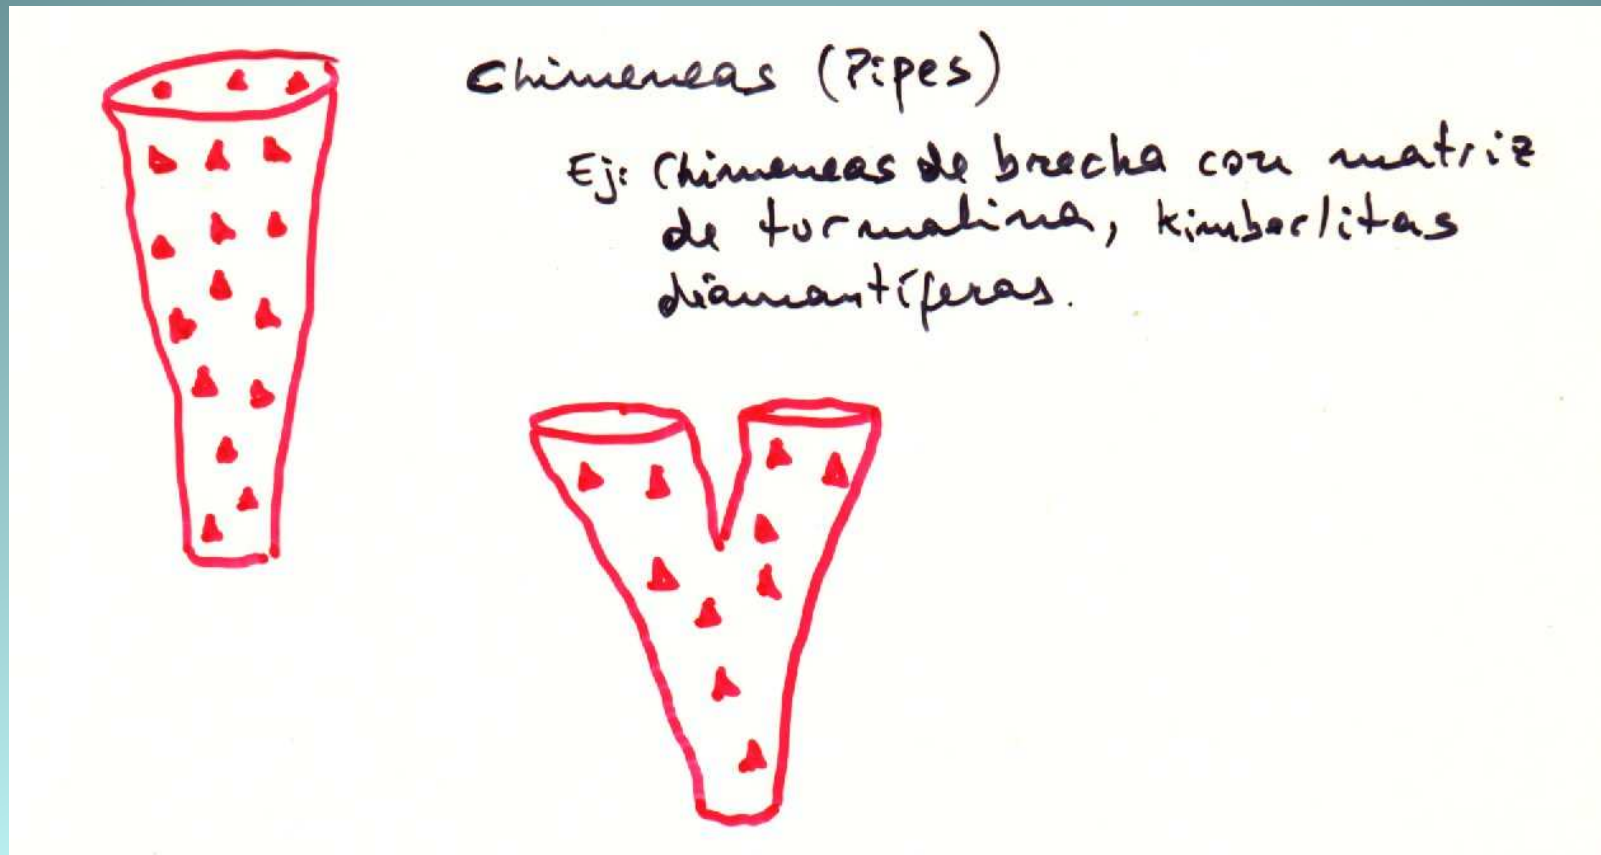 Chimeneas (Pipes)
Ej: Chimeneas de brecha con matriz
de turmalina, kimberlitas
diamantíferas.